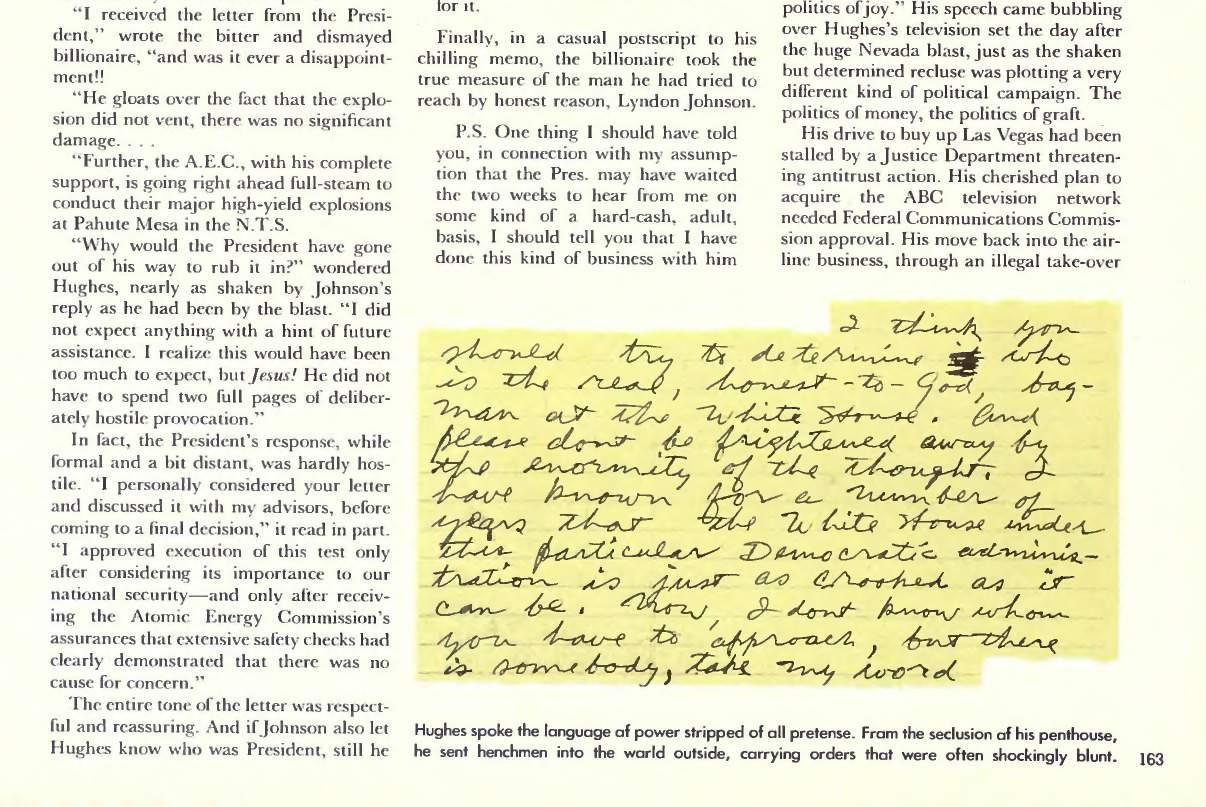 "I received the letter from the Presi-
dent," wrote the bitter and dismayed
billionaire, "and was it ever a disappoint-
ment!!
"He gloats over the fact that the explo-
sion did not vent, there was no significant
damage. . . .
"Further, the A.E.C., with his complete
support, is going right ahead full-steam to
conduct their major high-yield explosions
at Pahute Mesa in the N.T.S.
"Why would the President have gone
out of his way to rub it in?" wondered
Hughes, nearly as shaken by Johnson's
reply as he had been by the blast. "I did
not expect anything with a hint of future
assistance. I realize this would have been
too much to expect, but Jesus! He did not
have to spend two full pages of deliber-
ately hostile provocation."
In fact, the President's response, while
formal and a bit distant, was hardly hos-
tile. "I personally considered your letter
and discussed it with my advisors, before
coming to a final decision," it read in part.
"I approved execution of this test only
after considering its importance to our
national security—and only after receiv-
ing the Atomic Energy Commission's
assurances that extensive safety checks had
clearly demonstrated that there was no
cause for concern."
The entire tone of the letter was respect-
ful and reassuring. And if Johnson also let
Hughes know who was President, still he
for it.
Finally, in a casual postscript to his
chilling memo, the billionaire took the
true measure of the man he had tried to
reach by honest reason, Lyndon Johnson.
P.S. One thing I should have told
you, in connection with my assump-
tion that the Pres. may have waited
the two weeks to hear from me on
some kind of a hard-cash, adult,
basis, I should tell you that I have
done this kind of business with him
politics of joy." His speech came bubbling
over Hughes's television set the day after
the huge Nevada blast, just as the shaken
but determined recluse was plotting a very
different kind of political campaign. The
politics of money, the politics of graft.
His drive to buy up Las Vegas had been
stalled by a Justice Department threaten-
ing antitrust action. His cherished plan to
acquire the ABC television network
needed Federal Communications Commis-
sion approval. His move back into the air-
line business, through an illegal take-over
I think you
should try to determine who
is the real, honest-to-God, bag-
man at the White House. And
please dont be frightened away by
the enormity of the thought. I
have known for a number of
years that the White House under
this particular Democratic adminis-
tration is just as crooked as it
can be. Now, I dont know whom
you have to approach, but there
is somebody, take my word
Hughes spoke the language of power stripped of all pretense. From the seclusion of his penthouse,
he sent henchmen into the world outside, carrying orders that were often shockingly blunt. 163